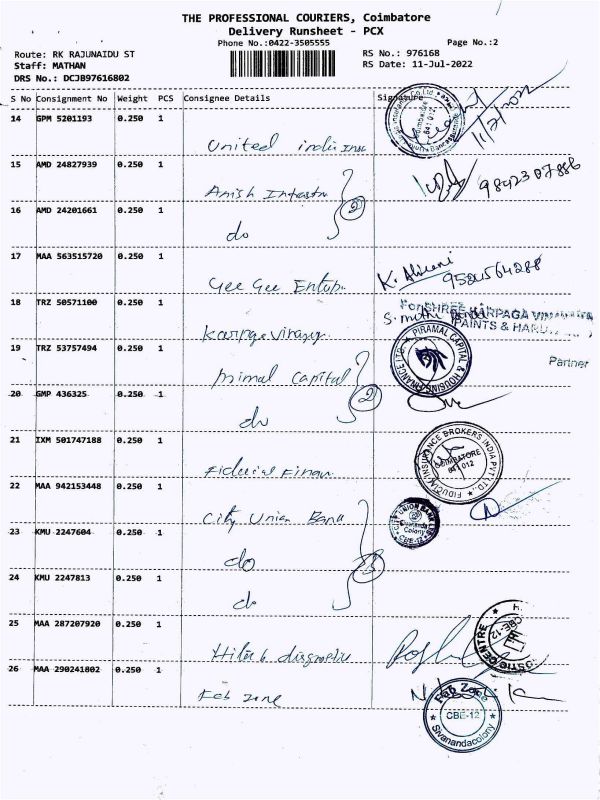 THE PROFESSIONAL COURIERS, Coimbatore
Delivery Runsheet - PCX
Phone No.:0422-3505555
Page No.:2
Route: RK RAJUNAIDU ST
RS No.: 976168
Staff: MATHAN
RS Date: 11-Jul-2022
DRS No.: DCJB97616802
S No Consignment No Weight PCS Consignee Details Signature
14 GPM 5201193 0.250 1
United india Insu
11/7/2022
15 AMD 24827939 0.250 1
Anish
9842307886
16 AMD 24201661 0.250 1
do
2
17 MAA 563515720 0.250 1
Gee Gee Entop.
K.
9524564288
18 TRZ 50571100 0.250 1
For SHREE KARPAGA VINAYAGA
PAINTS & HARD
Partner
19 TRZ 53757494 0.250 1
primal capital
PIRAMAL CAPITAL & HOUSING FINANCE LTD.
20 GMP 436325 0.250 1
do
2
21 IXM 501747188 0.250 1
Fiducial Finan
FIDUCIAL INSURANCE BROKERS INDIA PVT LTD.,
COIMBATORE
641 012
22 MAA 942153448 0.250 1
City Union Bank
CITY UNION BANK LTD
Sivananda
Colony
CBE-12
23 KMU 2247604 0.250 1
do
3
24 KMU 2247813 0.250 1
do
25 MAA 287207920 0.250 1
Hitech diagnostic
OSTIC CENTRE
CBE-12
26 MAA 290241802 0.250 1
Feb zone
Feb Zone
CBE-12
Sivanandacolony